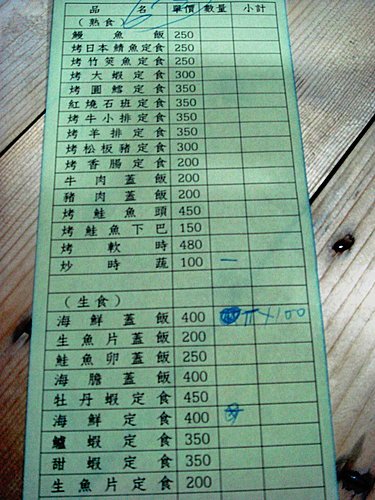 品 名 單價 數量 小計
（熟食）
鰻魚飯 250
烤日本鯖魚定食 250
烤竹筴魚定食 250
烤大蝦定食 300
烤圓鱈定食 350
紅燒石班定食 350
烤牛小排定食 350
烤羊排定食 350
烤松板豬定食 300
烤香腸定食 200
牛肉蓋飯 200
豬肉蓋飯 200
烤鮭魚頭 450
烤鮭魚下巴 150
烤軟時 480
炒時蔬 100 一
（生食）
海鮮蓋飯 400 X100
生魚片蓋飯 200
鮭魚卵蓋飯 250
海膽蓋飯 400
牡丹蝦定食 450
海鮮定食 400
鱸蝦定食 350
甜蝦定食 350
生魚片定食 200